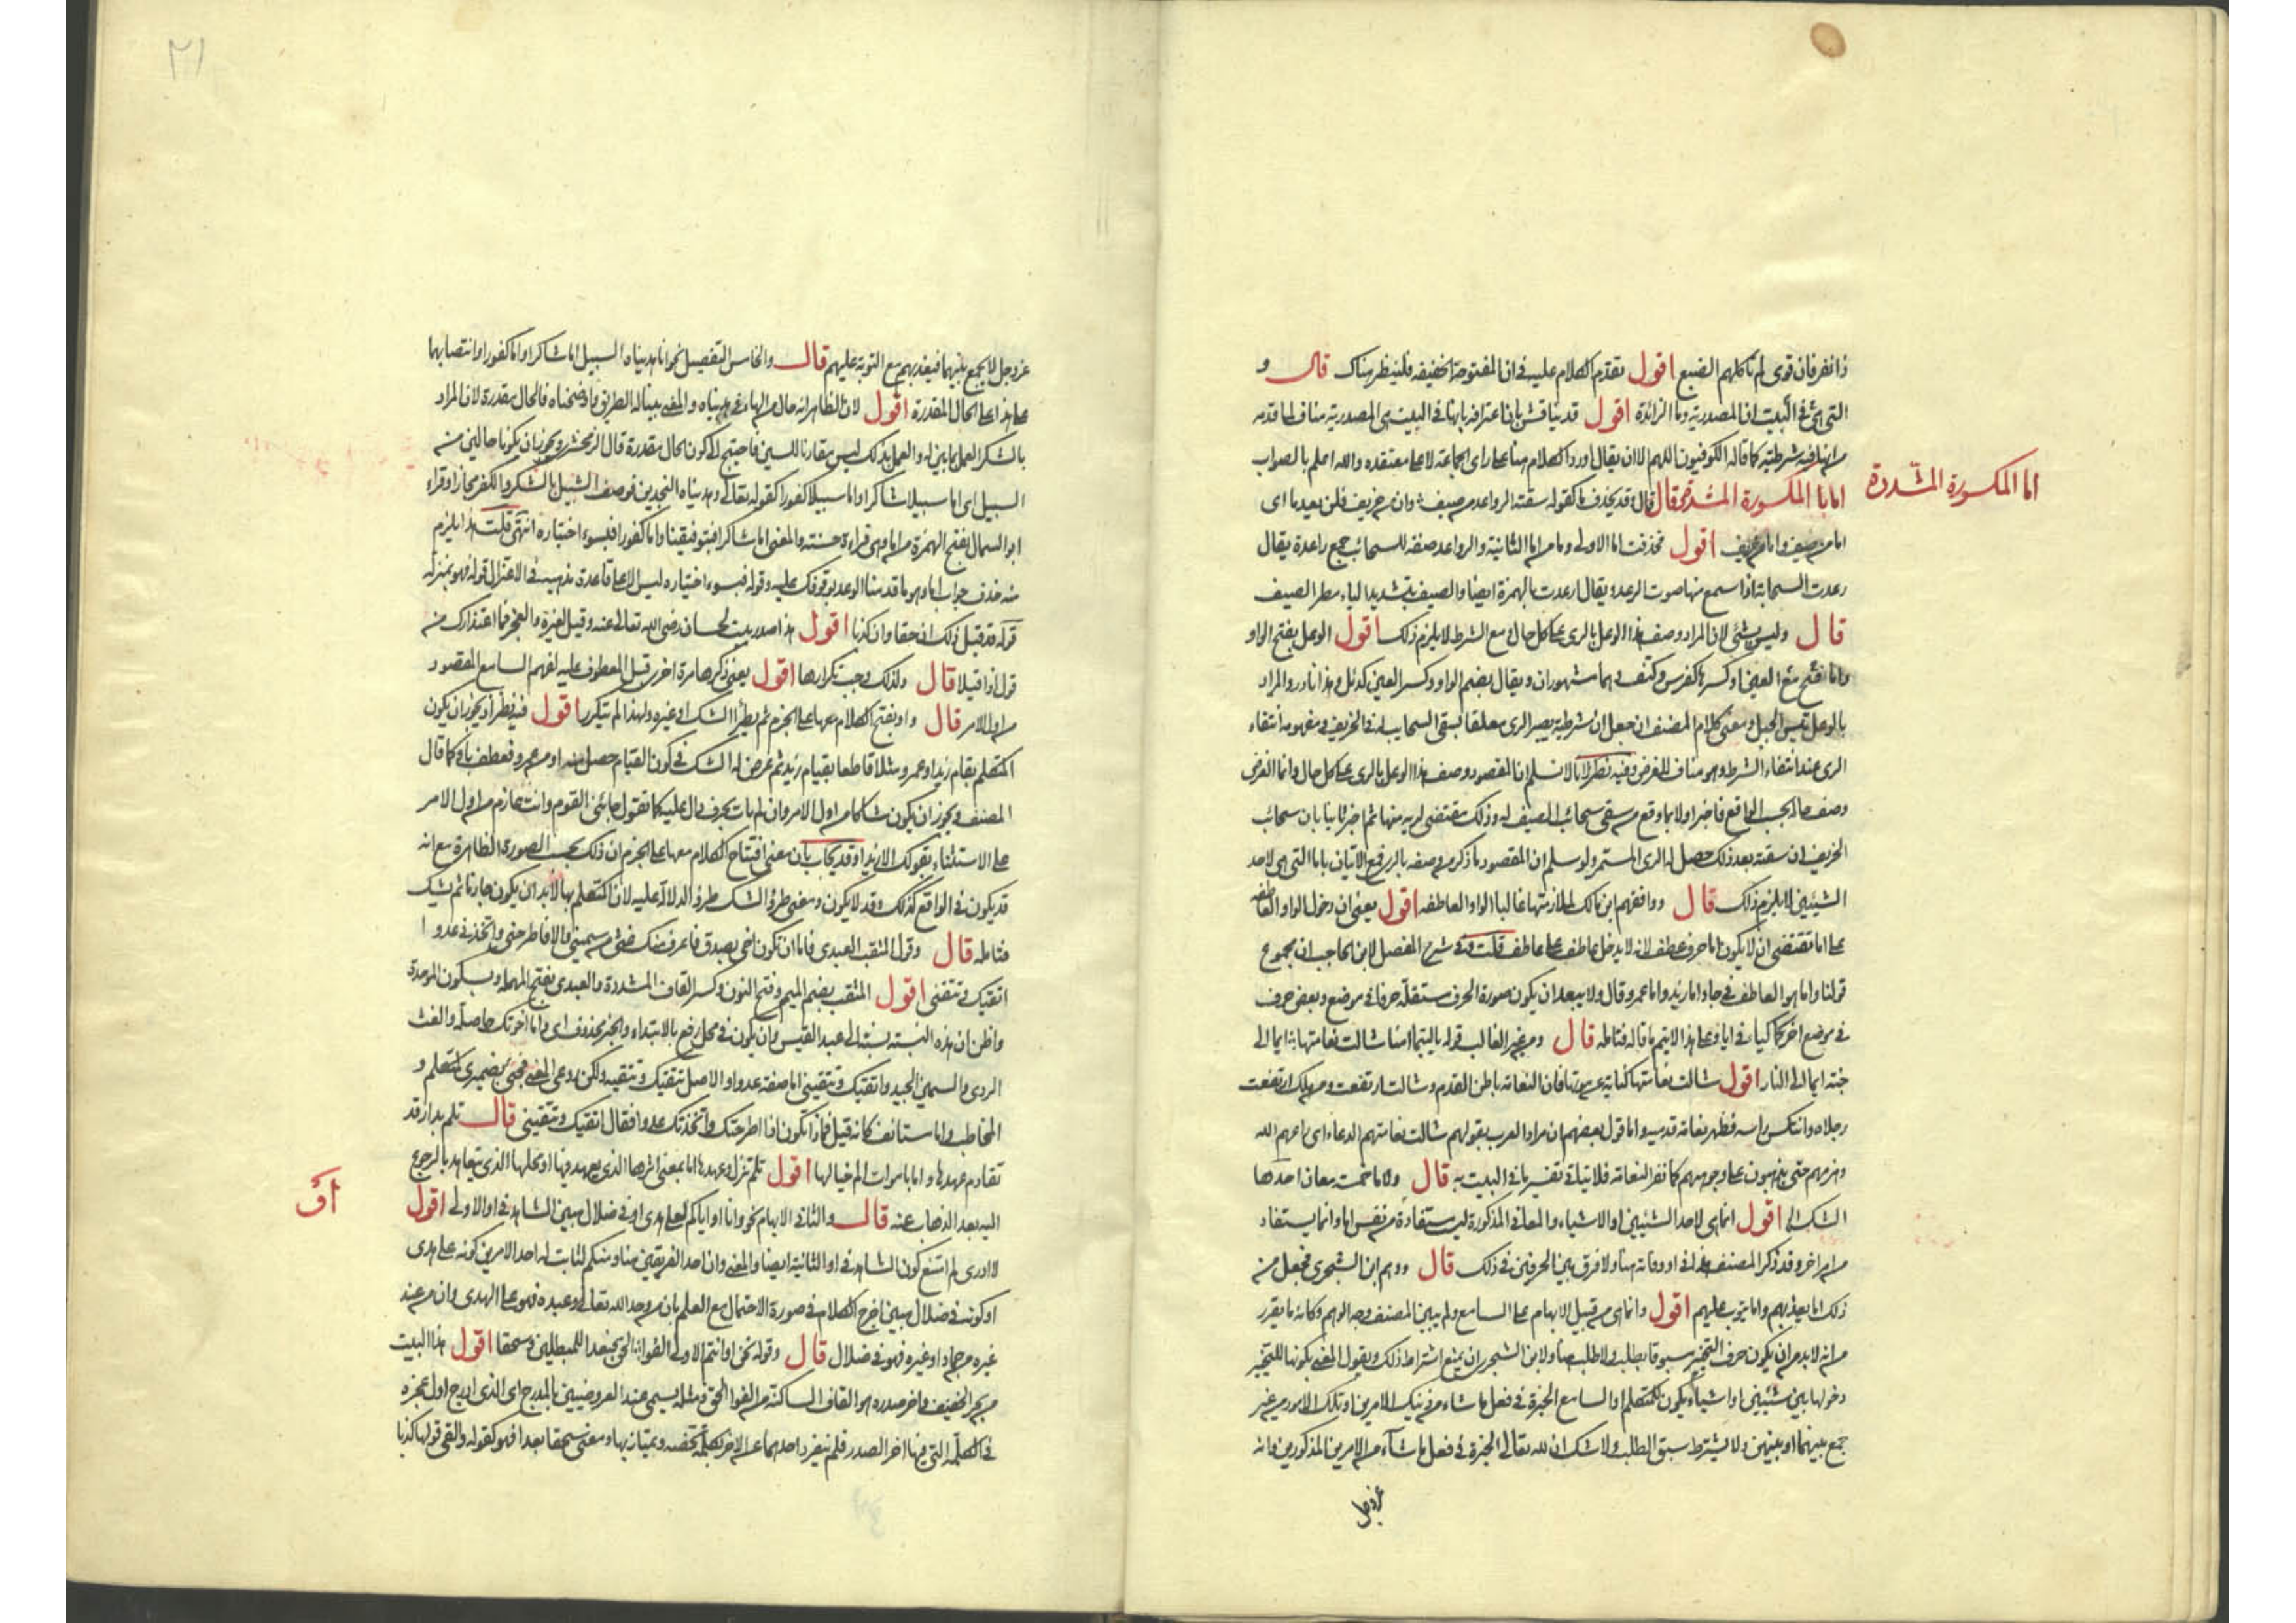 ذا نفر فان قومى لم تاكلهم الضبع اقول تقدم الكلام عليه فى ان المفتوحة الخفيفة فلينظر هناك قال و
التى فى البيت ان المصدرية وما الزائدة اقول قد يناقش بان اعترافه بانها فى البيت هى المصدرية مناف لما قدمه
من انها فيه شرطية كما قاله الكوفيون اللهم الا ان يقال اورد الكلام هنا على راى الجماعة لا على معتقده والله اعلم بالصواب
اما المكسورة المشددة
اما المكسورة المشددة قال قد يحذف ما كقوله سقته الرواعد من صيف وان من خريف فلن يعدما اى
اما من صيف واما من خريف اقول فحذفت اما الاولى وما من اما الثانية والرواعد صفة للسحائب جمع راعدة يقال
رعدت السحابة اذا سمع منها صوت الرعد ويقال ارعدت بالهمزة ايضا والصيف بتشديد الياء مطر الصيف
قال وليس بشئ لان المراد وصف هذا الوعل بالرى على كل حال ومع الشرط لا يلزم ذلك اقول الوعل بفتح الواو
واما فتح مع العين او كسرها كفرس وكتف وهما مشهوران ويقال بضم الواو وكسر العين كدئل وهذا نادر والمراد
بالوعل تيس الجبل ومعنى كلام المصنف ان جعل ان شرطية يصير الرى معلقا بسقى السحاب له فى الخريف ومفهومه انتفاء
الرى عند انتفاء الشرط وهو مناف للغرض وفيه نظر لانا لا نسلم ان المقصود وصف هذا الوعل بالرى على كل حال وانما الغرض
وصف حاله بحسب الواقع فاخبر اولا بما وقع من سقى سحائب الصيف له وذلك مقتضى لريه منها ثم اخبر ثانيا بان سحائب
الخريف ان سقته بعد ذلك حصل له الرى المستمر ولو سلم ان المقصود ما ذكره من وصفه بالرى فمع الاتيان باما التى هى لاحد
الشيئين لا يلزم ذلك قال ووافقهم ابن مالك لملازمتها غالبا الواو العاطفة اقول يعنى ان دخول الواو العاطفة
على اما تقتضى ان لا يكون اما حرف عطف لانه لا يدخل عاطف على عاطف قلت وفى شرح المفصل لابن الحاجب ان مجموع
قولنا واما هو العاطف فى جاء اما زيد واما عمرو قال ولا يبعد ان يكون صورة الحرف مستقلة حرفا فى موضع وبعض حرف
فى موضع اخر كيا فى ايا وعلى هذا لا يتم ما قاله فتامله قال ومن غير الغالب قوله ياليتما امنا شالت نعامتها ايما الى
جنة ايما الى النار اقول شالت نعامتها كناية عن موتها فان النعامة باطن القدم وشالت ارتفعت ومن هلك ارتفعت
رجلاه وانتكس راسه فظهر نعامة قدميه واما قول بعضهم ان مراد العرب بقولهم شالت نعامتهم الدعاء اى راعهم الله
وهزمهم حتى يذهبون على وجوههم كما نفر النعامة فلا يتاتى تفسير ما فى البيت به قال ولاما خمسة معان احدها
الشك الى اقول انما هى لاحد الشيئين او الاشياء والمعانى المذكورة ليست مستفادة من نفس اما وانما يستفاد
من امر اخر وقد ذكر المصنف هذا فى او وفاته هنا ولا فرق بين الحرفين فى ذلك قال ووهم ابن الشجرى فجعل منه
ذلك اما يعذبهم واما يتوب عليهم اقول وانما هى من قبيل الابهام على السامع ولم يبين المصنف وجه الوهم وكانه ما يقرر
من انه لا بد من ان يكون حرف التخيير مسبوقا بطلب ولا طلب هنا ولابن الشجرى ان يمنع اشتراط ذلك ويقول المعنى بكونها للتخيير
دخولها بين شيئين او اشياء يكون للمتكلم او السامع الخيرة فى فعل ما شاء من ذينك الامرين او تلك الامور من غير
جمع بينهما او بينهن ولا يشترط سبق الطلب ولا شك ان لله تعالى الخيرة فى فعل ما شاء من الامرين المذكورين وانه
عز وجل
٢١
عز وجل لا يجمع بينهما فيعذبهم مع التوبة عليهم قال والخامس التفصيل نحو انا هديناه السبيل اما شاكرا واما كفورا وانتصابهما
على هذا على الحال المقدرة اقول لان الظاهر انه حال من الهاء فى هديناه والمعنى بينا له الطريق واوضحناه فالحال مقدرة لان المراد
بالشكر العمل بما بين له والعمل بذلك ليس مقارنا للتبيين فاحتيج الى كون الحال مقدرة قال الزمخشرى ويجوز ان يكونا حالين من
السبيل اى اما سبيلا شاكرا واما سبيلا كفورا كقوله تعالى وهديناه النجدين فوصف السبيل بالشكر والكفر مجازا وقراء
ابو السمال بفتح الهمزة من اما وهى قراءة حسنة والمعنى اما شاكرا فبتوفيقنا واما كفورا فبسوء اختياره انتهى قلت هذا يلزم
منه حذف جواب اما وهو ما قدمنا الوعد بوقوفك عليه وقوله فبسوء اختياره ليس الا على قاعدة مذهبه فى الاعتزال قوله وهو بمنزلة
قوله قد قيل ذلك ان حقا وان كذبا اقول هذا صدر بيت لحسان رضى الله تعالى عنه وقيل لغيره والعجز فما اعتذارك من
قول اذا قيلا قال ولذلك وجب تكرارها اقول يعنى ذكرها مرة اخرى قبل المعطوف عليه لفهم السامع المقصود
من اول الامر قال واو يفتح الكلام معها على الجزم ثم يطرأ الشك او غيره ولهذا لم تتكرر اقول فيه نظر اذ يجوز ان يكون
المتكلم بقام زيد او عمرو مثلا قاطعا بقيام زيد ثم عرض له الشك فى كون القيام حصل منه او من عمرو فعطف باو كما قال
المصنف ويجوز ان يكون شاكا من اول الامر وان لم يات بحرف دال عليه كما تقول جاءنى القوم وانت عازم من اول الامر
على الاستثناء بقولك الا زيدا وقد يجاب بان معنى افتتاح الكلام معها على الجزم ان ذلك بحسب الصورة الظاهرة مع انه
قد يكون فى الواقع كذلك وقد لا يكون ومعنى طرؤ الشك طرؤ الدلالة عليه لان المتكلم بها لا بد ان يكون جازما ثم شك
فتامله قال وقول المثقب العبدى فاما ان تكون اخى بصدق فاعرف منك غثى من سمينى والا فاطرحنى واتخذنى عدوا
اتقيك وتتقينى اقول المثقب بضم الميم وفتح النون وكسر القاف المشددة والعبدى بفتح المهملة وسكون الموحدة
واظن ان هذه النسبة نسبة الى عبد القيس وان يكون فى محل رفع بالابتداء والخبر محذوف اى واما اخوتك حاصلة والغث
الردى والسمين الجيد واتقيك وتتقينى اما صفة عدوا والاصل تتقيك وتتقيه ولكن روعى المعنى فجئ بضميرى المتكلم و
المخاطب واما مستانف كانه قيل فماذا تكون اذا اطرحتك واتخذتك عدوا فقال اتقيك وتتقينى قال تلم بدار قد
تقادم عهدها واما باموات الم خيالها اقول تلم تنزل وعهدها اما بمعنى اثرها الذى يعهد فيها او محلها الذى يتعاهد بالرجوع
اليه بعد الذهاب عنه قال والثانى الابهام نحو وانا او اياكم لعلى هدى او فى ضلال مبين الشاهد فى او الاولى اقول
أو
لا ادرى لم امتنع كون الشاهد فى او الثانية ايضا والمعنى وان احد الفريقين منا ومنكم لثابت له احد الامرين كونه على هدى
او كونه فى ضلال مبين اخرج الكلام فى صورة الاحتمال مع العلم بان من وحد الله تعالى وعبده فهو على الهدى وان من عبد
غيره من جماد او غيره فهو فى ضلال قال وقوله نحن او انتم الاولى الفوا الحق فبعدا للمبطلين وسحقا اقول هذا البيت
من بحر الخفيف واخر صدره هو القاف الساكنة من الفوا الحق ومثله يسمى عند العروضيين بالمدرج اى الذى ادرج اول عجزه
فى الكلمة التى فيها اخر الصدر فلم ينفرد احدهما عن الاخر بكلمة تخصه ويمتاز بها ومعنى سحقا بعدا فهو كقوله والفى قولها كذبا